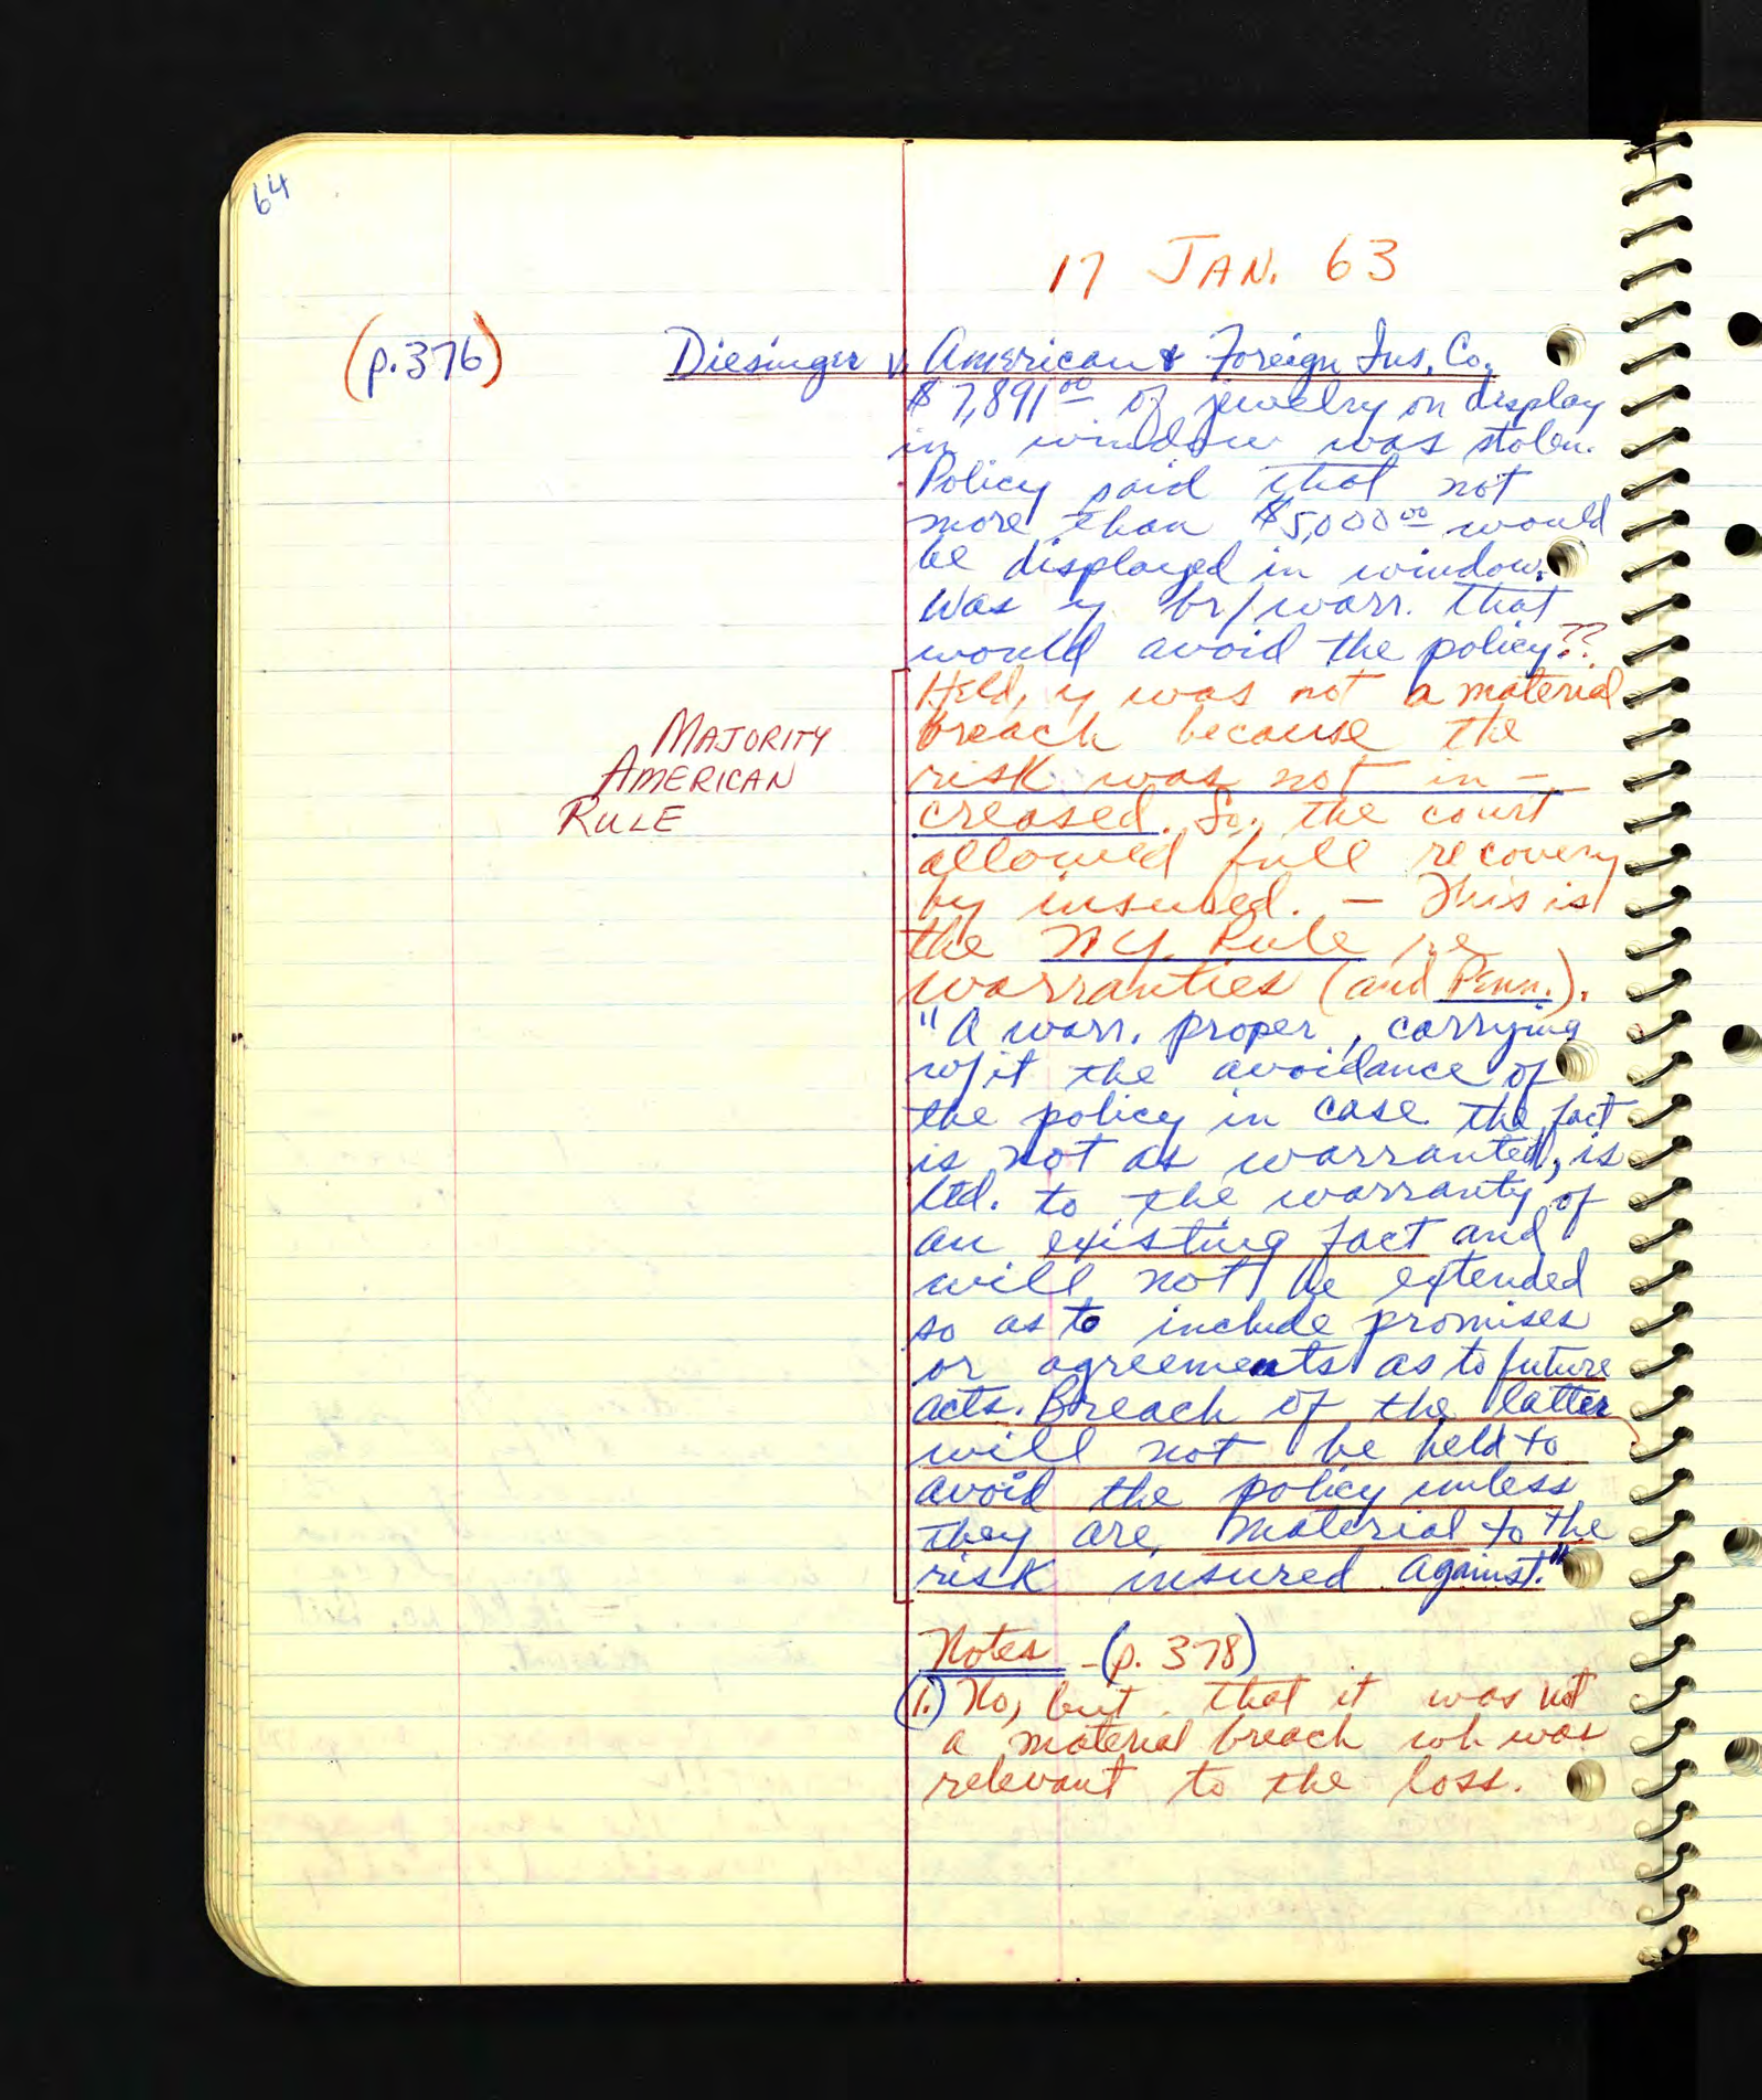 64
17 JAN. 63
(p.376) Diesinger v. American & Foreign Ins. Co.
$7,891.00 of jewelry on display
in window was stolen.
Policy said that not
more than $5,000.00 would
be displayed in window.
Was y br/warr. that
would avoid the policy??
Held, y was not a material
breach because the
MAJORITY
AMERICAN
RULE
risk was not in-
creased. So, the court
allowed full recovery
by insured. — This is
the NY Rule re
warranties (and Penn.).
"A warr. proper, carrying
w/it the avoidance of
the policy in case the fact
is not as warranted, is
ltd. to the warranty of
an existing fact and
will not be extended
so as to include promises
or agreements as to future
acts. Breach of the latter
will not be held to
avoid the policy unless
they are material to the
risk insured against."
Notes - (p. 378)
(1.) No, but that it was not
a material breach wh was
relevant to the loss.